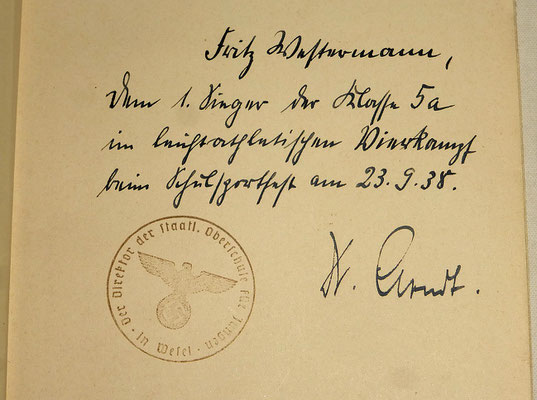 Fritz Westermann,
dem 1. Sieger der Klasse 5a
im leichtathletischen Vierkampf
beim Schulsportfest am 23.9.38.
Dr. Arndt.
Der Direktor der staatl. Oberschule für Jungen
in Wesel